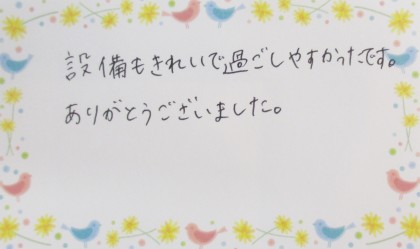 設備もきれいで過ごしやすかったです。
ありがとうございました。